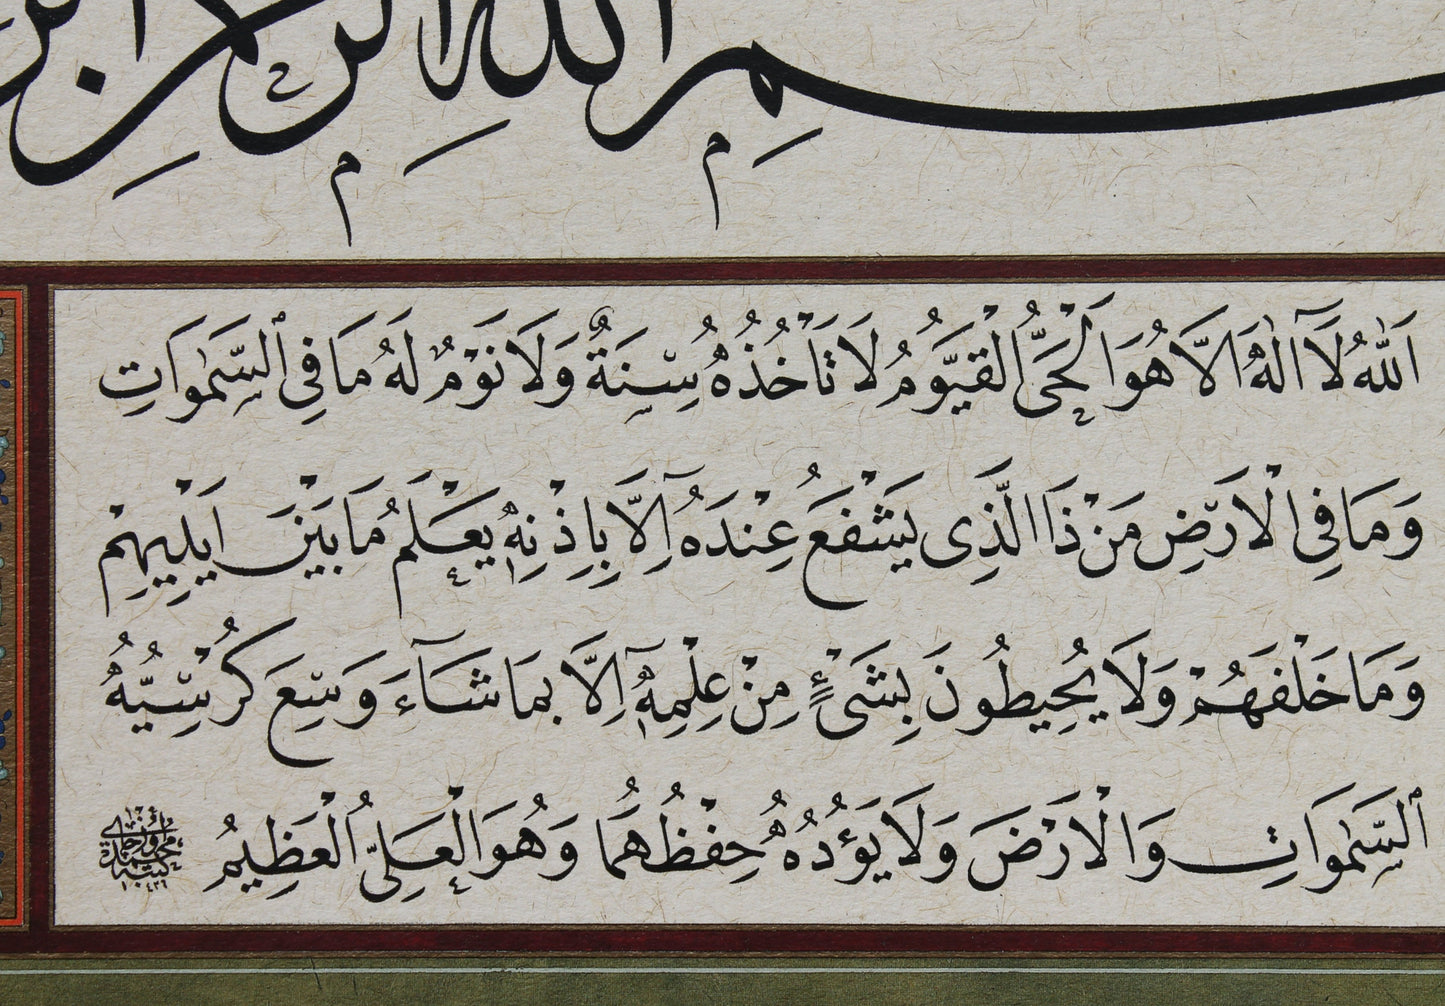 بِسْمِ اللهِ الرَّحْمٰنِ
اَللّٰهُ لَآ اِلٰهَ اِلَّا هُوَ الْحَيُّ الْقَيُّومُ لَا تَأْخُذُهُ سِنَةٌ وَلَا نَوْمٌ لَهُ مَا فِي السَّمٰوَاتِ
وَمَا فِي الْاَرْضِ مَنْ ذَا الَّذِى يَشْفَعُ عِنْدَهُٓ اِلَّا بِاِذْنِهٖ يَعْلَمُ مَا بَيْنَ اَيْدِيهِمْ
وَمَا خَلْفَهُمْ وَلَا يُحِيطُونَ بِشَىْءٍ مِنْ عِلْمِهٖٓ اِلَّا بِمَا شَآءَ وَسِعَ كُرْسِيُّهُ
السَّمٰوَاتِ وَالْاَرْضَ وَلَا يَؤُدُهُ حِفْظُهُمَا وَهُوَ الْعَلِىُّ الْعَظِيمُ